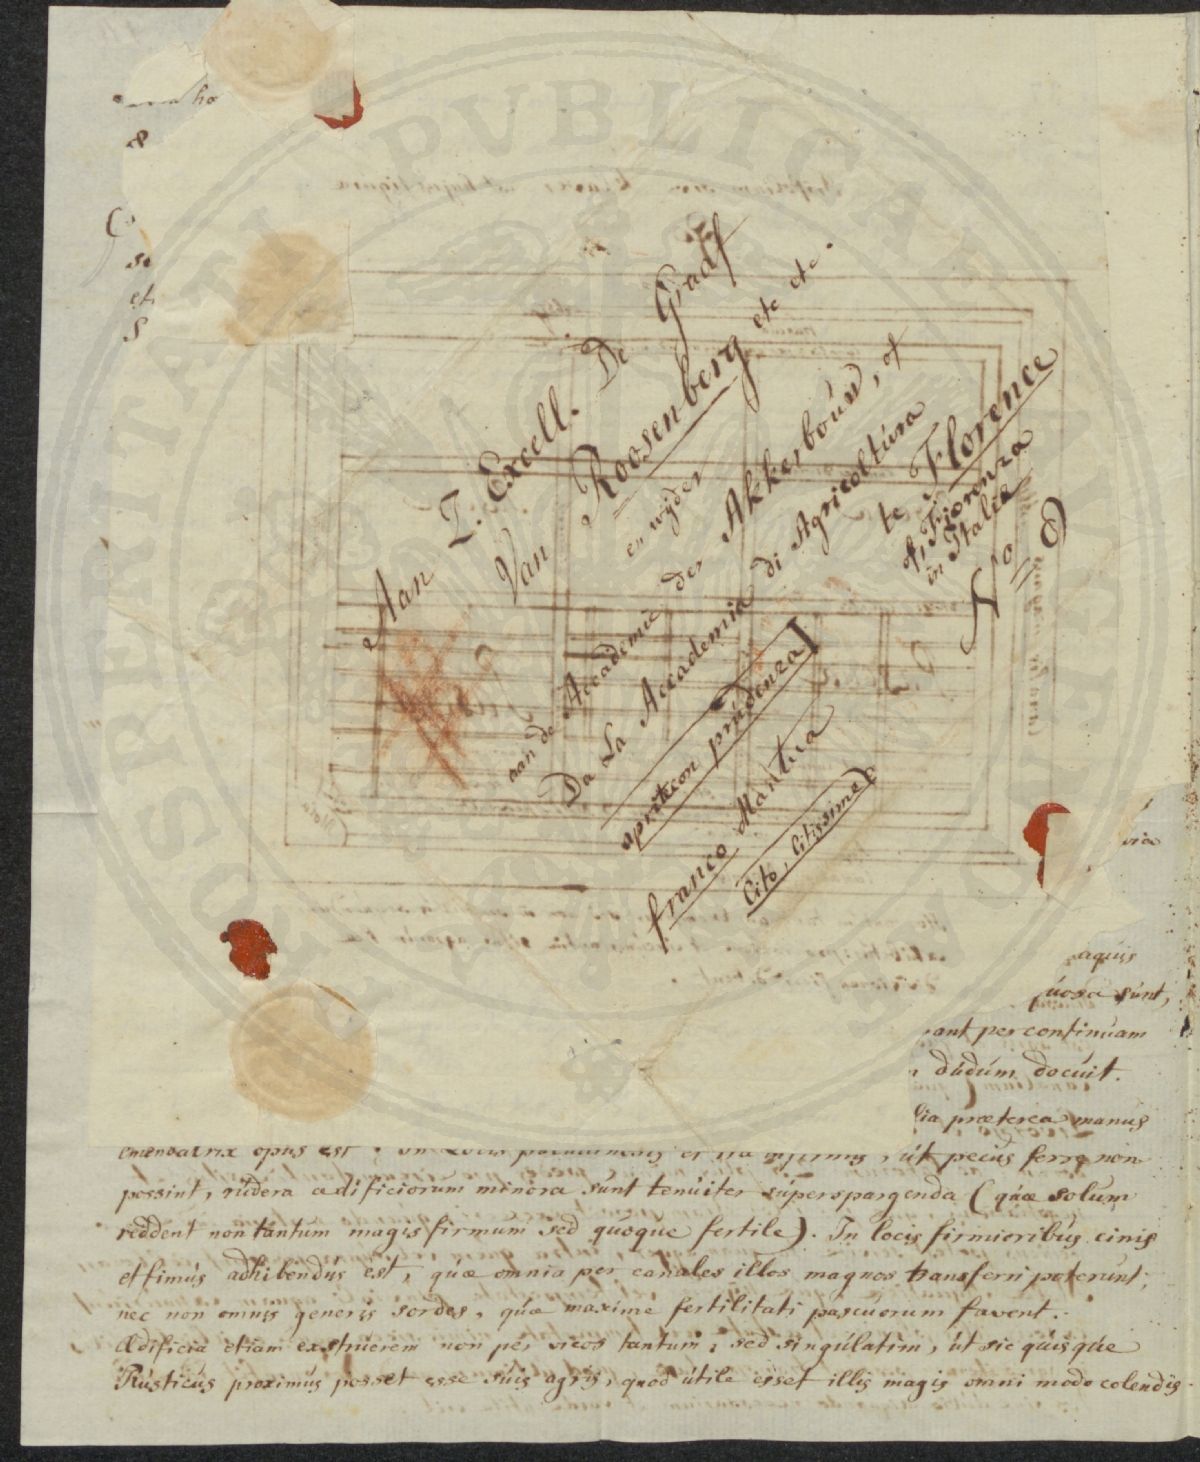 Aan Z. Excell. De Graaf
Van Roosenberg etc etc.
en wÿder
aan de Accademie der Akkerbouw, of
Da La Accademia di Agricoltúra
te Florence
of, Fiorenza
in Italie
N.o 8
aprite con prudenza
franco Mantua
Cito, Citissime
aquis
quosa súnt,
per continúam
dúdúm docúit.
præterea manus
emendatrix opus est.
út pecús ferre non
possint, rúdera ædificiorum minora sunt tenúiter súperspargenda (quæ solum
reddent non tantum magis firmum sed quoque fertile). In locis firmioribús cinis
et fimús adhibendús est, quæ omnia per canales illos magnos transferri poterúnt;
nec non omnis generis sordes, quæ maxime fertilitati pascuorum favent.
Ædificia etiam exstruerem non per vicos tantum, sed singúlatim, út sic quisque
Rústicús proximús posset esse súis agris, quod útile esset illis magis omni modo colendis.